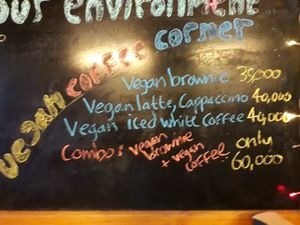 our environment
vegan coffee corner
Vegan brownie 35,000
Vegan latte, Cappuccino 40,000
Vegan iced white Coffee 40,000
Combo: vegan brownie + vegan coffee only 60,000